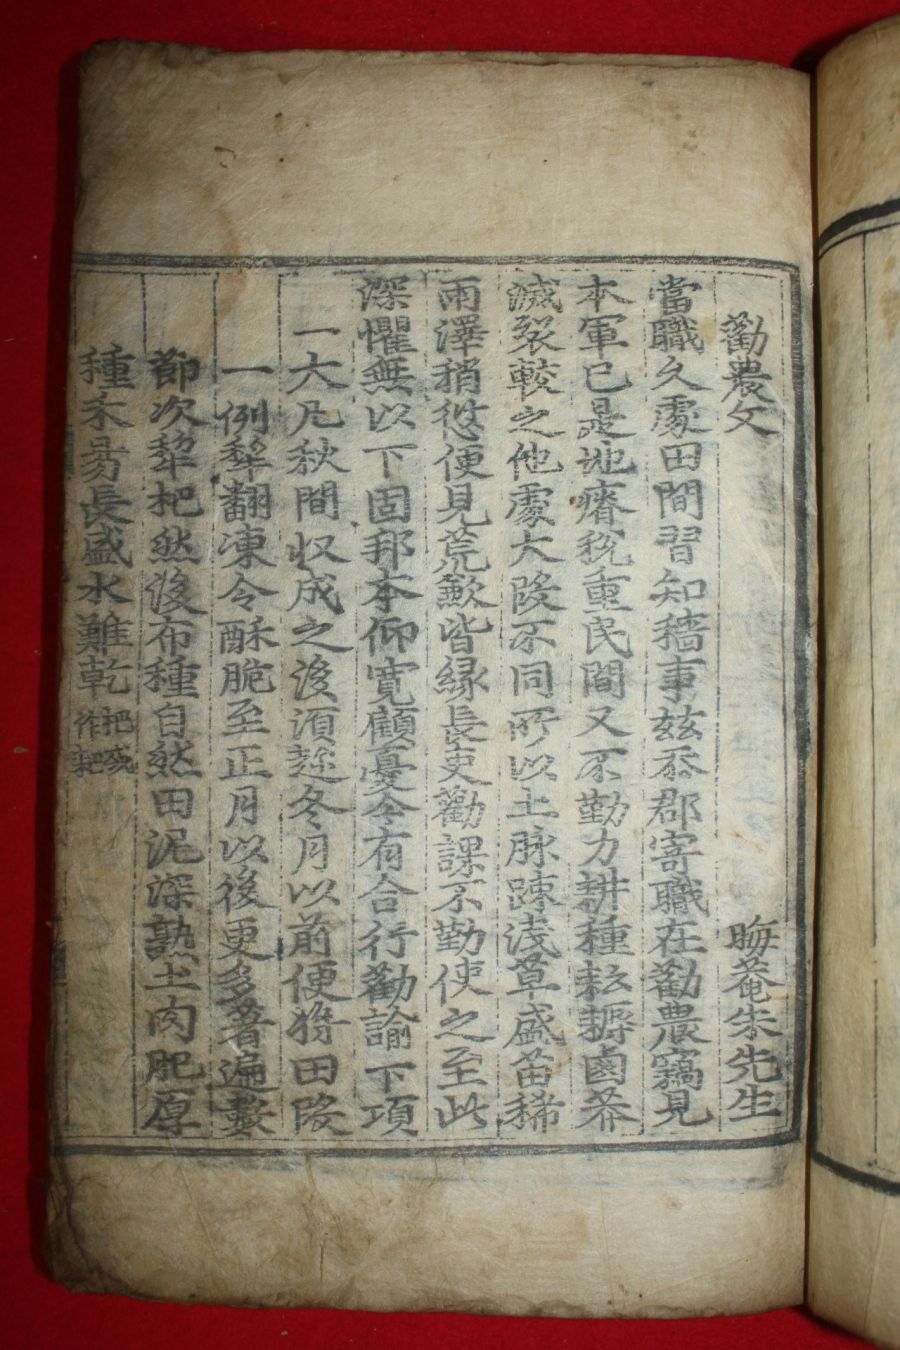 勸農文 晦菴朱先生
當職久處田間習知穡事玆忝郡寄職在勸農竊見
本軍已是地瘠稅重民間又不勤力耕種耘耨鹵莽
滅裂較之他處大段不同所以土脉踈淺草盛苗稀
雨澤稍愆便見荒歉皆緣長吏勸課不勤使之至此
深懼無以下固邦本仰寬顧憂今有合行勸諭下項
一大凡秋間收成之後須趁冬月以前便將田段
一例犂翻凍令酥脆至正月以後更多着遍數
節次犂杷然後布種自然田泥深熟土肉肥厚
種禾易長盛水難乾杷或作耙